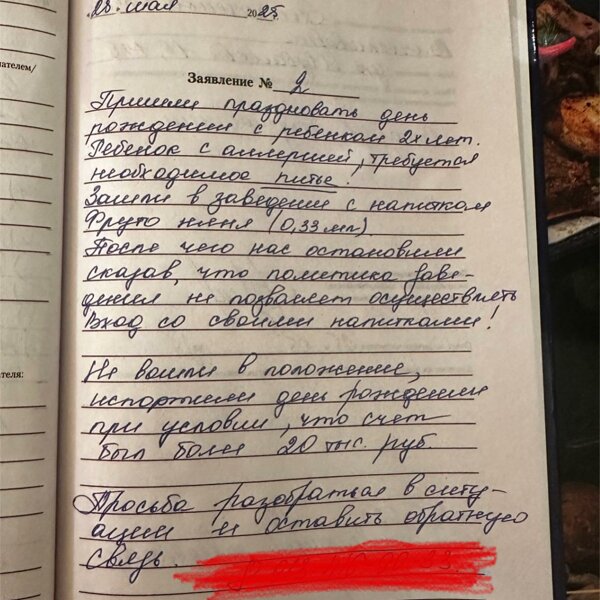 "28. мая 2025
ателем/
Заявление № 2
Пришли праздновать день
рождения с ребенком 2х лет.
Ребенок с аллергией, требуется
необходимое питье.
Зашли в заведение с напитком
Фруто няня (0,33 мл)
После чего нас остановили
сказав, что политика заве-
дения не позволяет осуществлять
Вход со своими напитками!
ателя:
Не вошли в положение,
испортили день рождения
при условии, что счет
был более 20 тыс. руб.
Просьба разобраться в ситу-
ации и оставить обратную
связь.